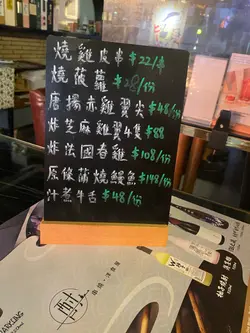 燒雞皮串$22/串
燒菠蘿$28/份
唐揚赤雞翼尖$48/份
炸芝麻雞翼4隻$88
炸法國春雞$108/份
原條蒲燒鰻魚$148/份
汁煮牛舌$48/份
串燒·洋食屋